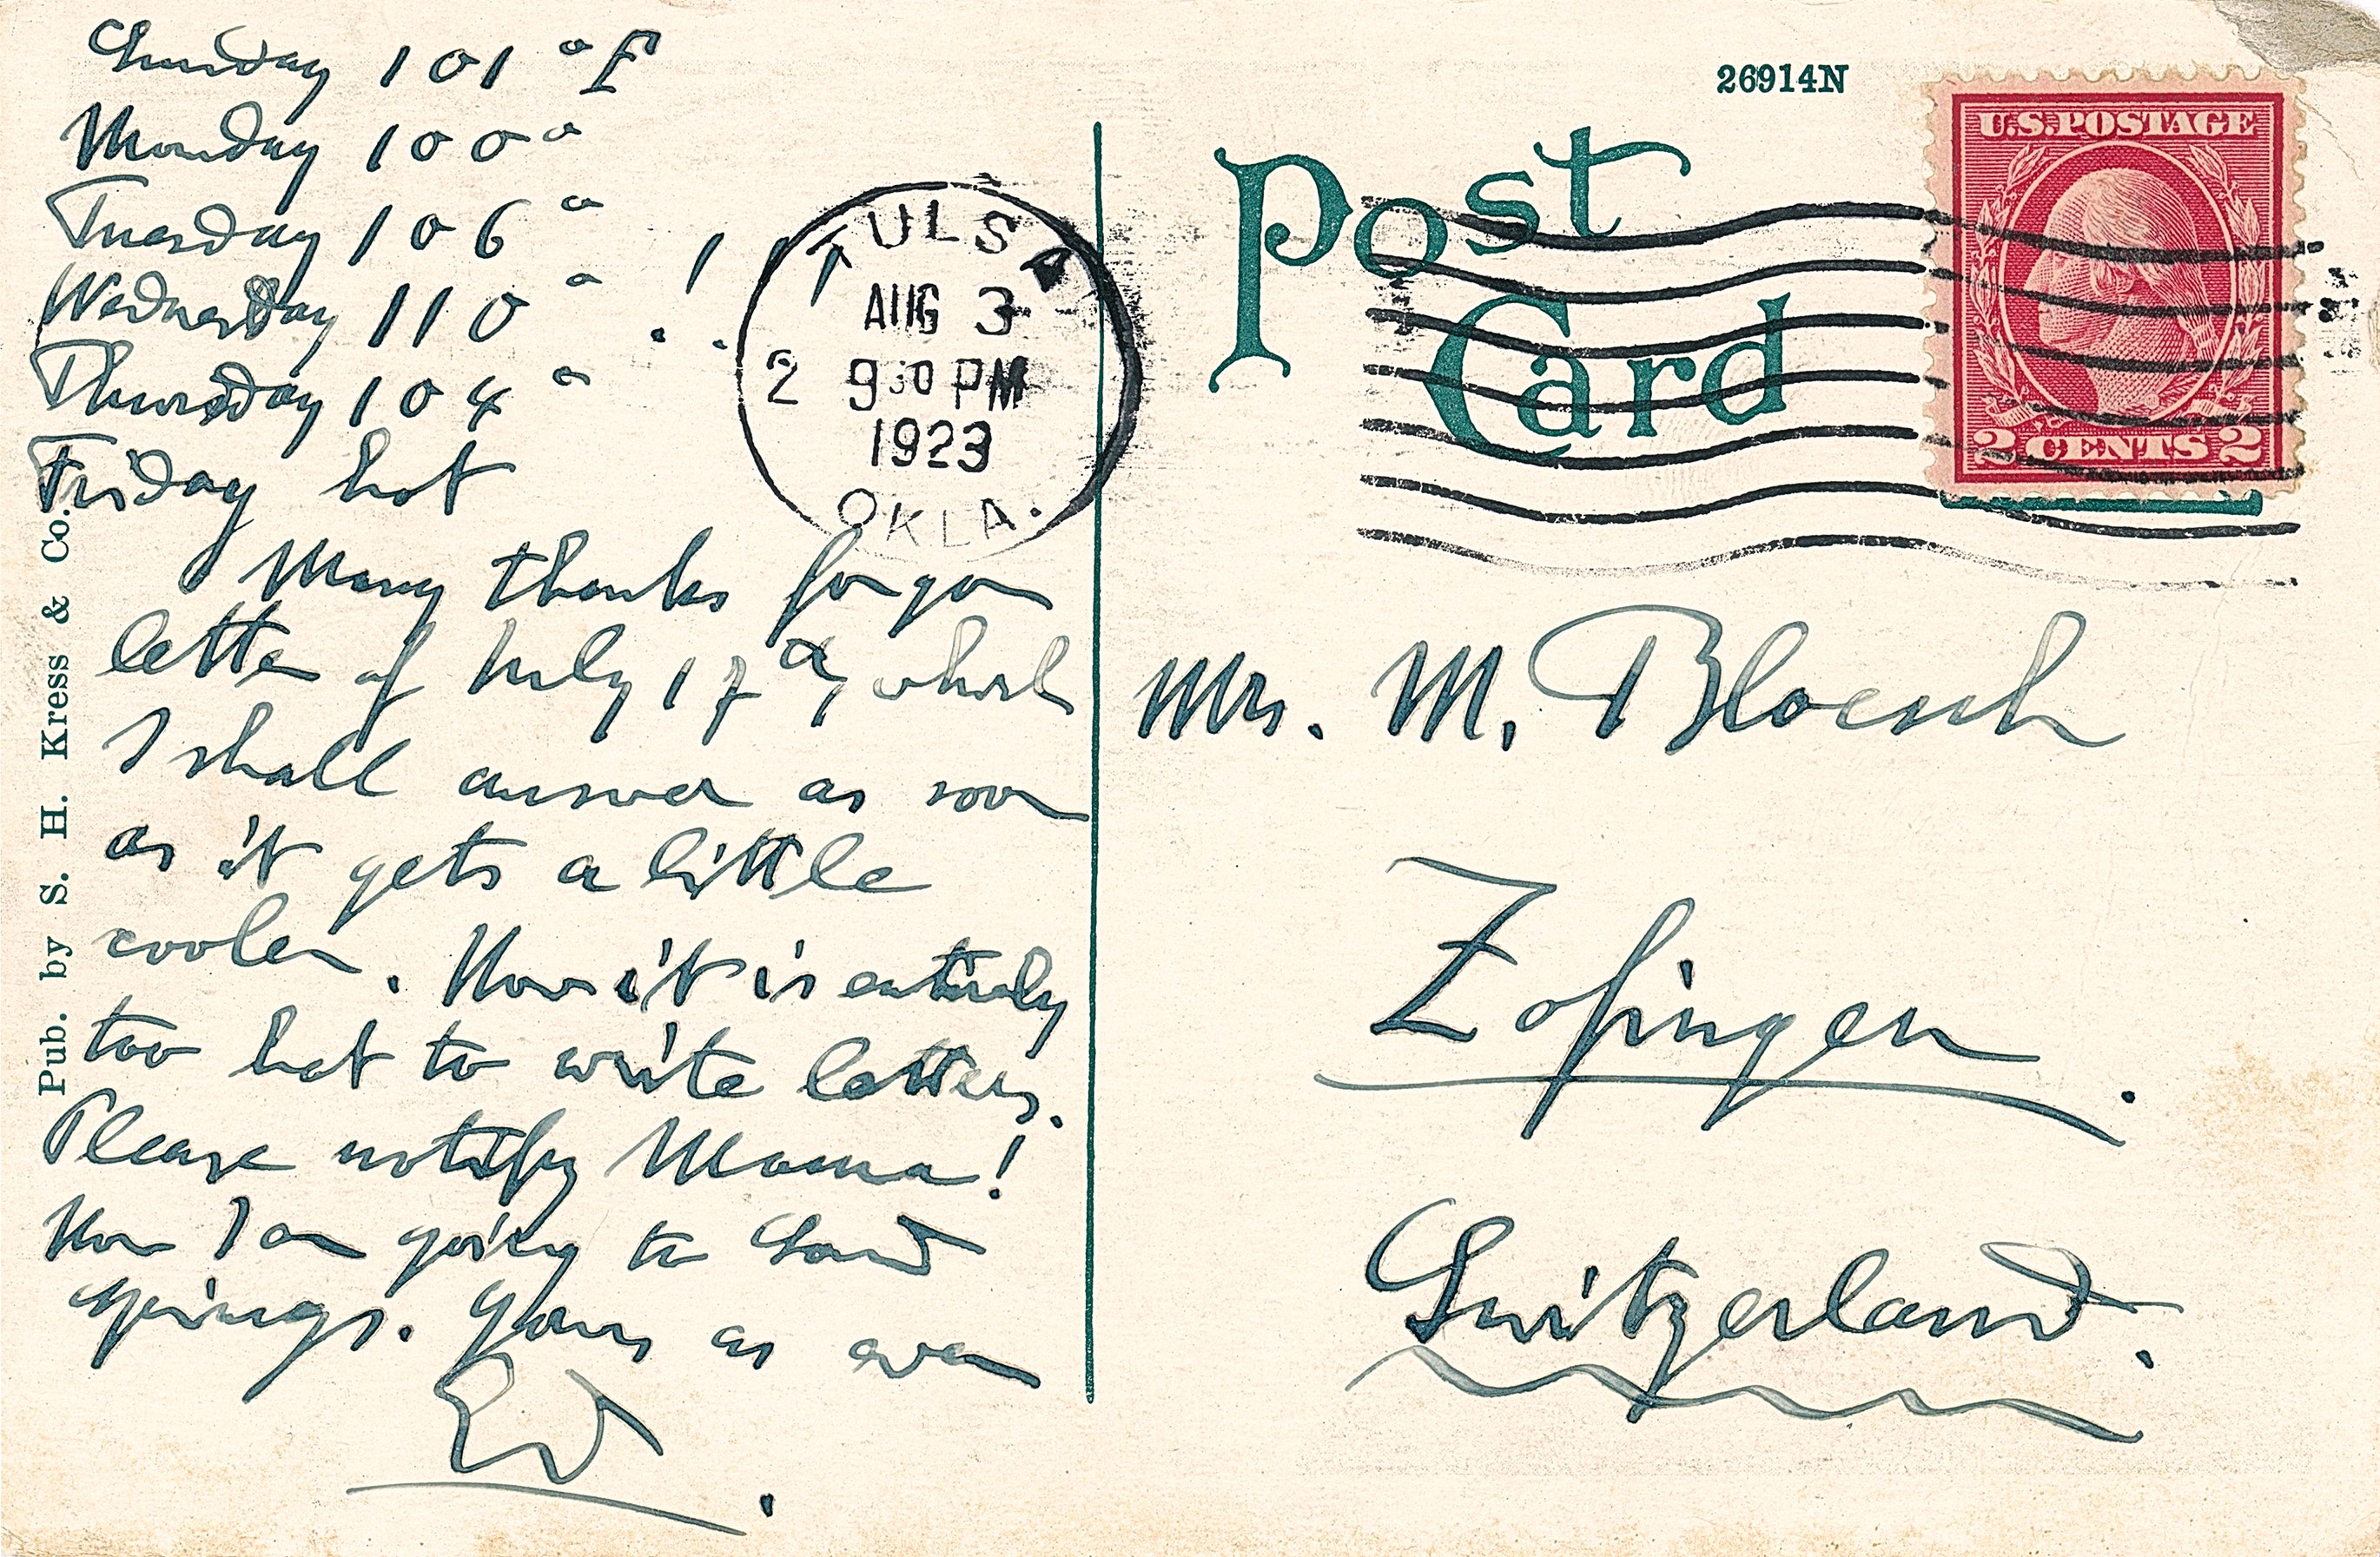 Sunday 101°F
Monday 100°
Tuesday 106°
Wednesday 110° !!
Thursday 104°
Friday hot
Many thanks for your
letter of July 17th, which
I shall answer as soon
as it gets a little
cooler. Now it is entirely
too hot to write letters.
Please notify Mama!
Now I am going to Sand
Springs. Yours as ever
Ed.
Pub. by S. H. Kress & Co.
TULSA
AUG 3
2 9 30 PM
1923
OKLA.
26914N
Post
Card
U.S. POSTAGE
2 CENTS 2
Mr. M. Bloesch
Zofingen.
Switzerland.